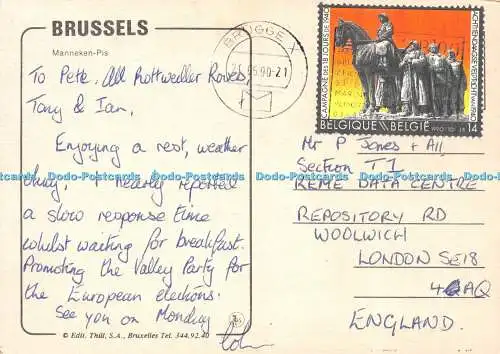 BRUSSELS
Manneken-Pis
To Pete, All Rottweiler Rovers,
Tony & Ian,
Enjoying a rest, weather
okay, I nearly reported
a slow response time
whilst waiting for breakfast.
Promoting the Valley Party for
the European elections.
See you on Monday
© Edit. Thill, S.A., Bruxelles Tel. 344.92.40
BRUGGE X
-5.90-21
CAMPAGNE DES 18 JOURS DE 1940
ACHTTIENDAAGSE VELDTOCHT
BELGIQUE BELGIË
1990
14
Mr P Jones + All
Section T1
REME DATA CENTRE
REPOSITORY RD
WOOLWICH
LONDON SE18
4QAQ
ENGLAND.
Dodo-Postcards Dodo-Postcards Dodo-Postcards Dodo-Postcards